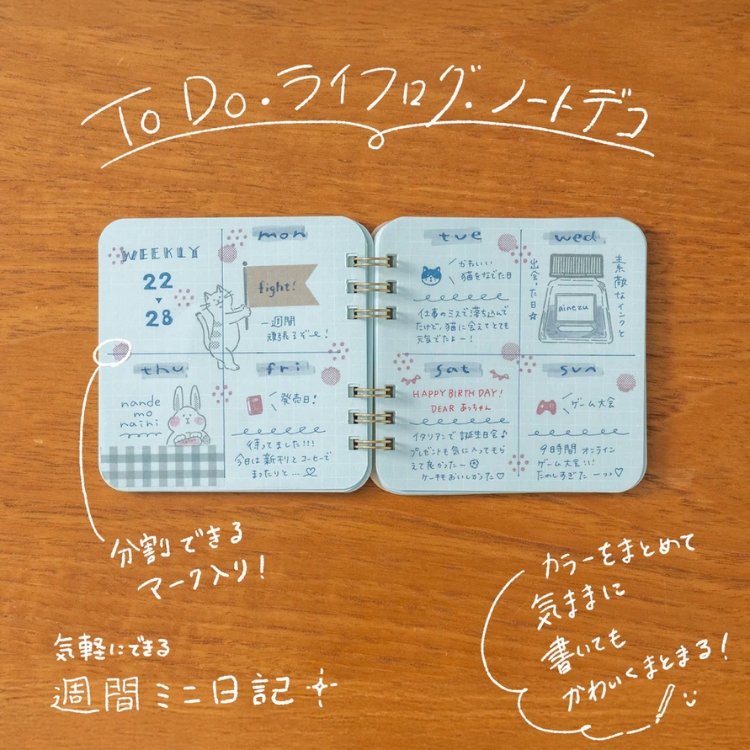 To Do・ライフログ・ノートデコ
WEEKLY
22
28
mon
fight!
一週間
頑張るぞー!
thu
nande
mo
naihi
fri
発売日!
待ってました!!!
今日は新刊とコーヒーで
まったりと…♡
tue
かわいい
猫をなでた日
仕事のミスで落ち込んで
たけど、猫に会えてとても
元気でたよー!
wed
素敵なインクと
出会った日☆
ainezu
sat
HAPPY BIRTHDAY!
DEAR あっちゃん
イタリアンで誕生日会♪
プレゼントも気に入ってもら
えて良かったー
ケーキもおいしかった♡
sun
ゲーム大会
9時間オンライン
ゲーム大会!!!
たのしすぎたーっ♡
分割できる
マーク入り!
気軽にできる
週間ミニ日記
カラーをまとめて
気ままに
書いても
かわいくまとまる!